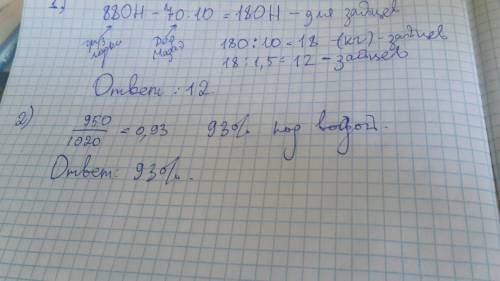 1)
880Н - 70·10 = 180Н - для зайцев
груз лодки
Дед Мазай
180:10 = 18 (кг) - зайцев
18:1,5 = 12 - зайцев
Ответ: 12
2)
950/1020 = 0,93 93% под водой.
Ответ: 93%.